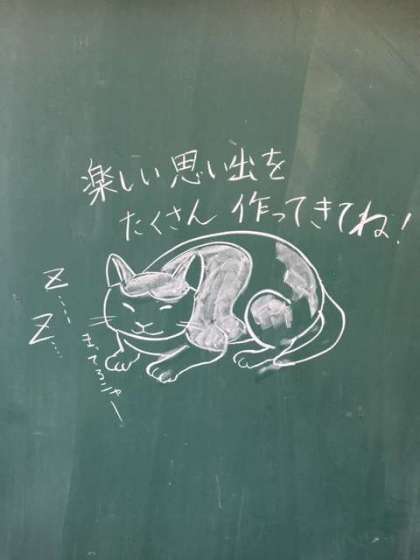 楽しい思い出を
たくさん作ってきてね!
Z.....
Z....
まってるニャー